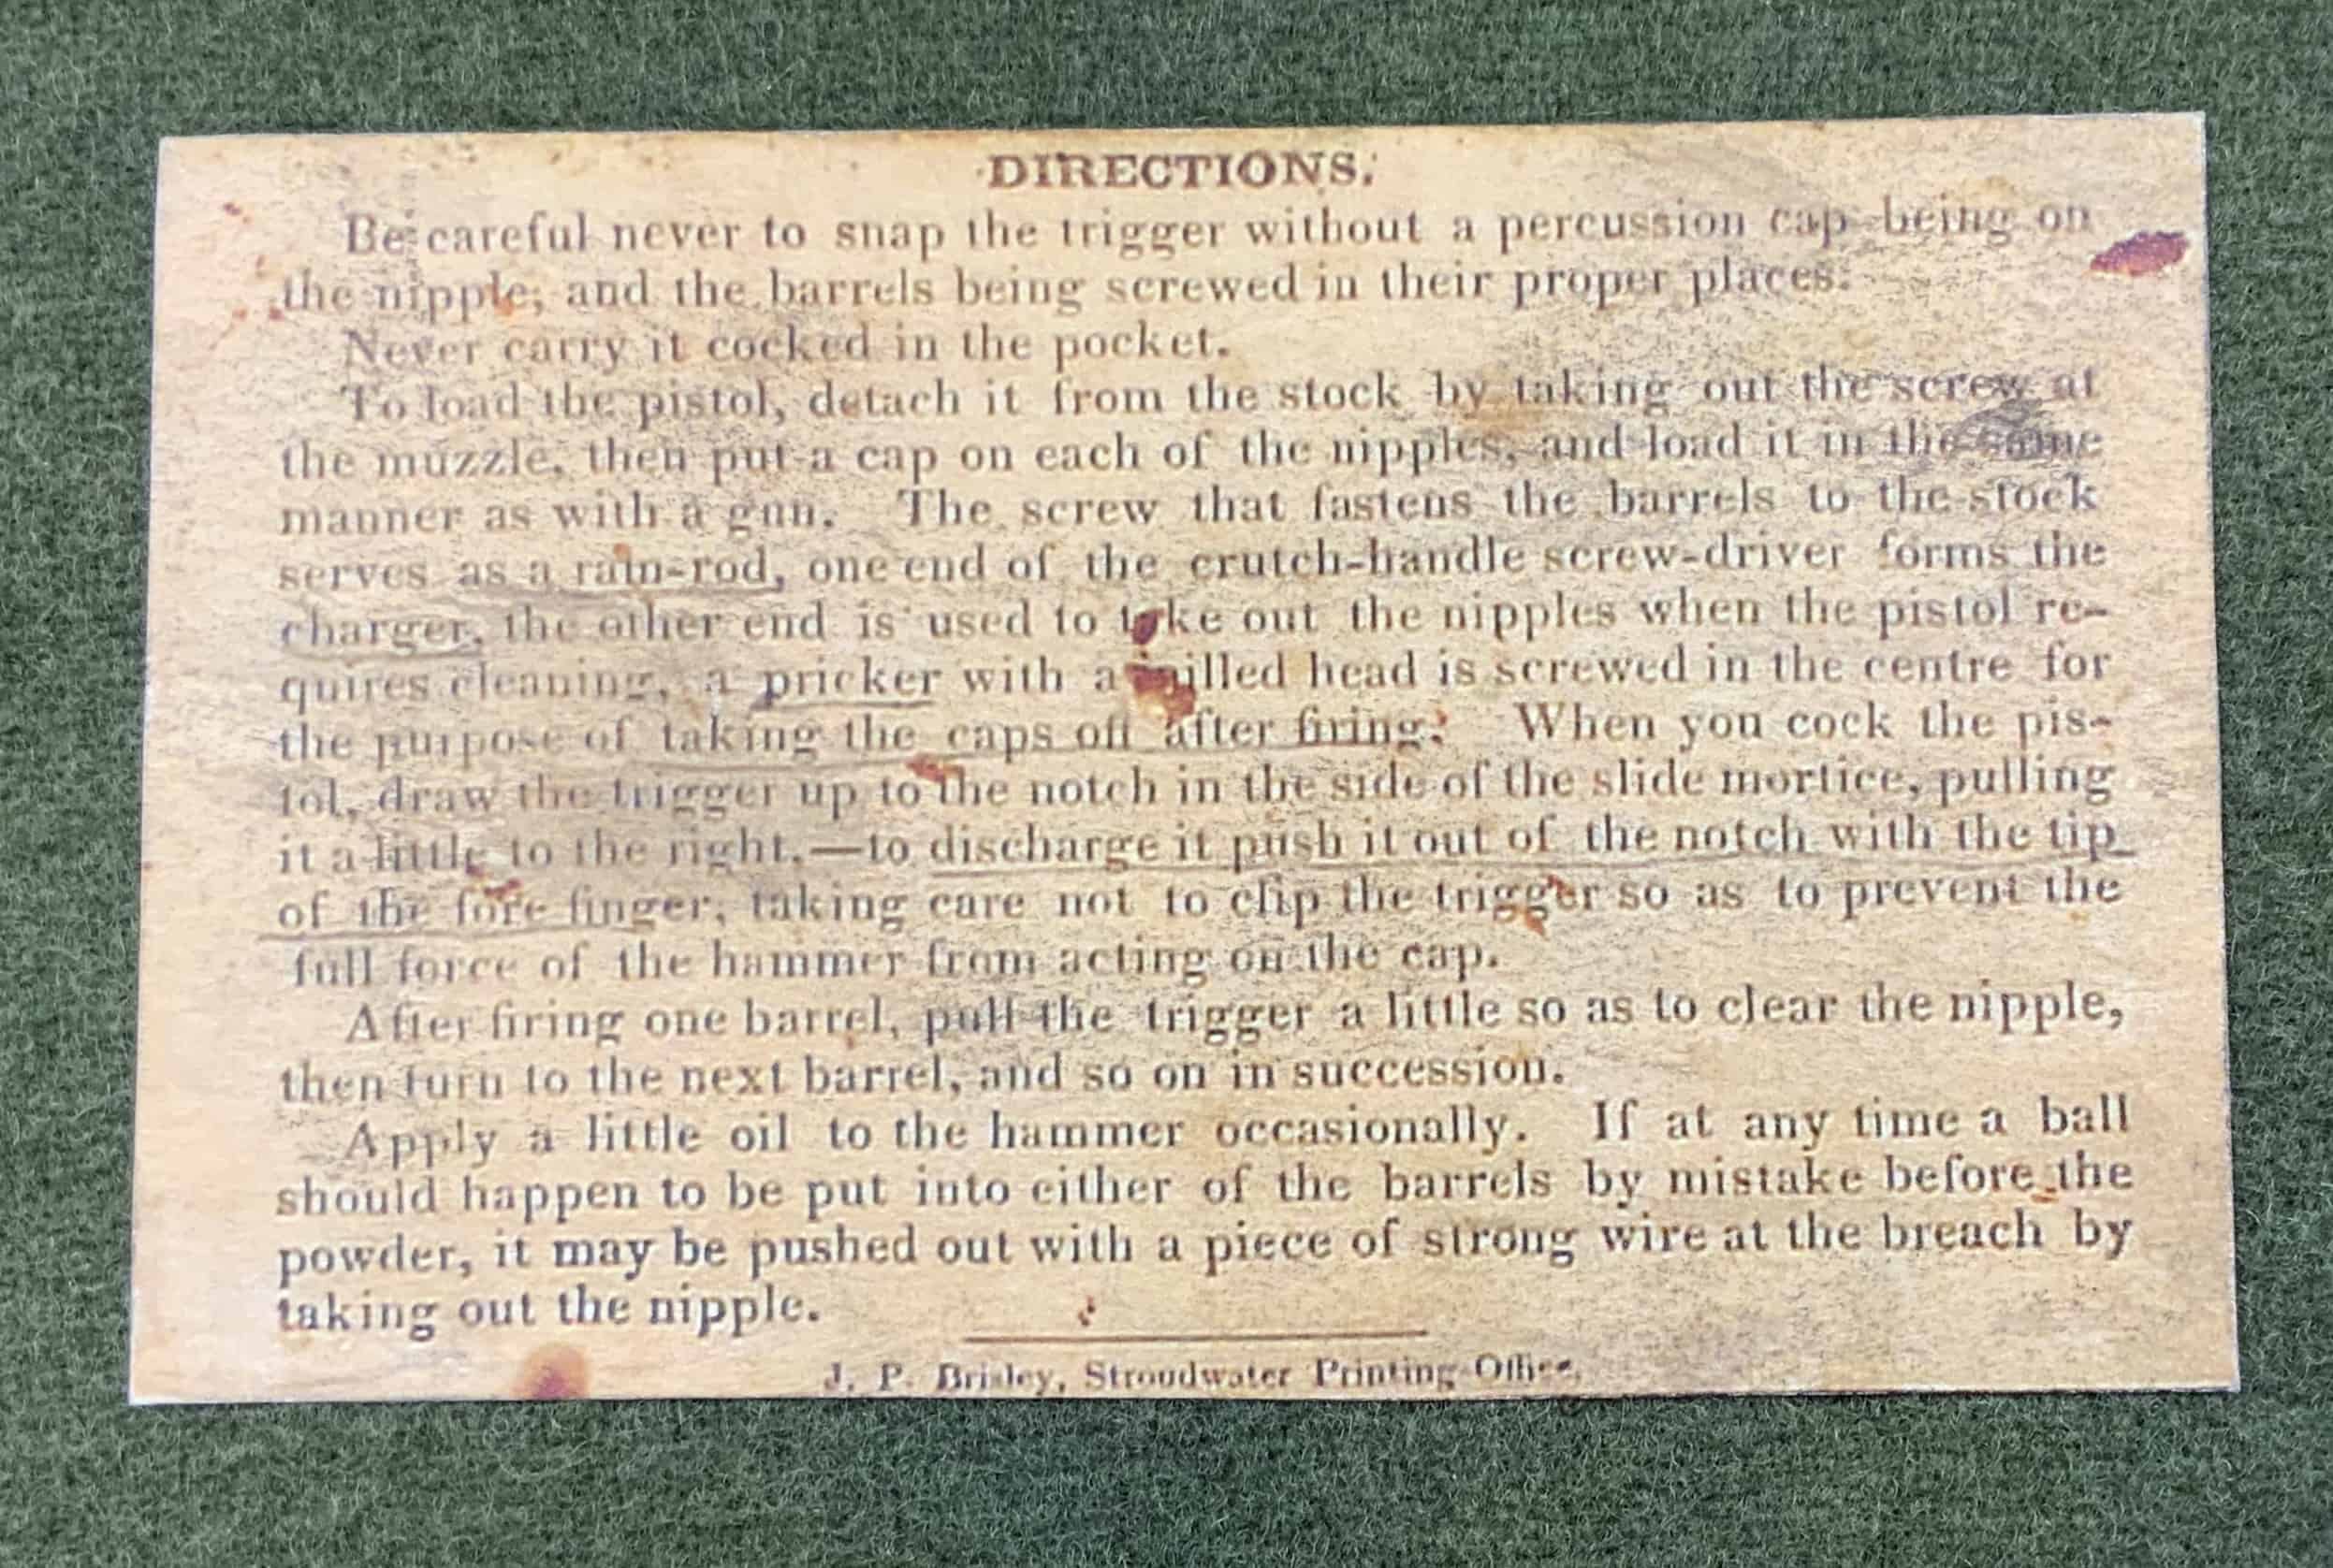 DIRECTIONS.
Be careful never to snap the trigger without a percussion cap being on
the nipple, and the barrels being screwed in their proper places.
Never carry it cocked in the pocket.
To load the pistol, detach it from the stock by taking out the screw at
the muzzle, then put a cap on each of the nipples, and load it in the same
manner as with a gun. The screw that fastens the barrels to the stock
serves as a ram-rod, one end of the crutch-handle screw-driver forms the
charger, the other end is used to take out the nipples when the pistol re-
quires cleaning, a pricker with a milled head is screwed in the centre for
the purpose of taking the caps off after firing. When you cock the pis-
tol, draw the trigger up to the notch in the side of the slide mortice, pulling
it a little to the right,—to discharge it push it out of the notch with the tip
of the fore finger, taking care not to clip the trigger so as to prevent the
full force of the hammer from acting on the cap.
After firing one barrel, pull the trigger a little so as to clear the nipple,
then turn to the next barrel, and so on in succession.
Apply a little oil to the hammer occasionally. If at any time a ball
should happen to be put into either of the barrels by mistake before the
powder, it may be pushed out with a piece of strong wire at the breach by
taking out the nipple.
J. P. Brisley, Stroudwater Printing Office.